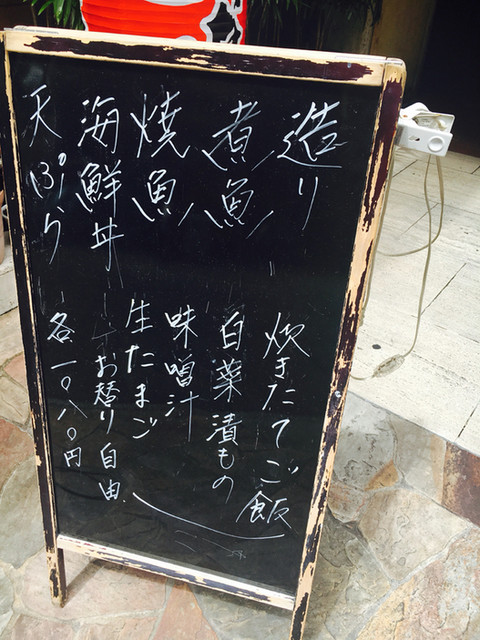 造り
煮魚
焼魚
海鮮丼
天ぷら
炊きたてご飯
白菜漬もの
味噌汁
生たまご
お替り自由
各一〇八〇円